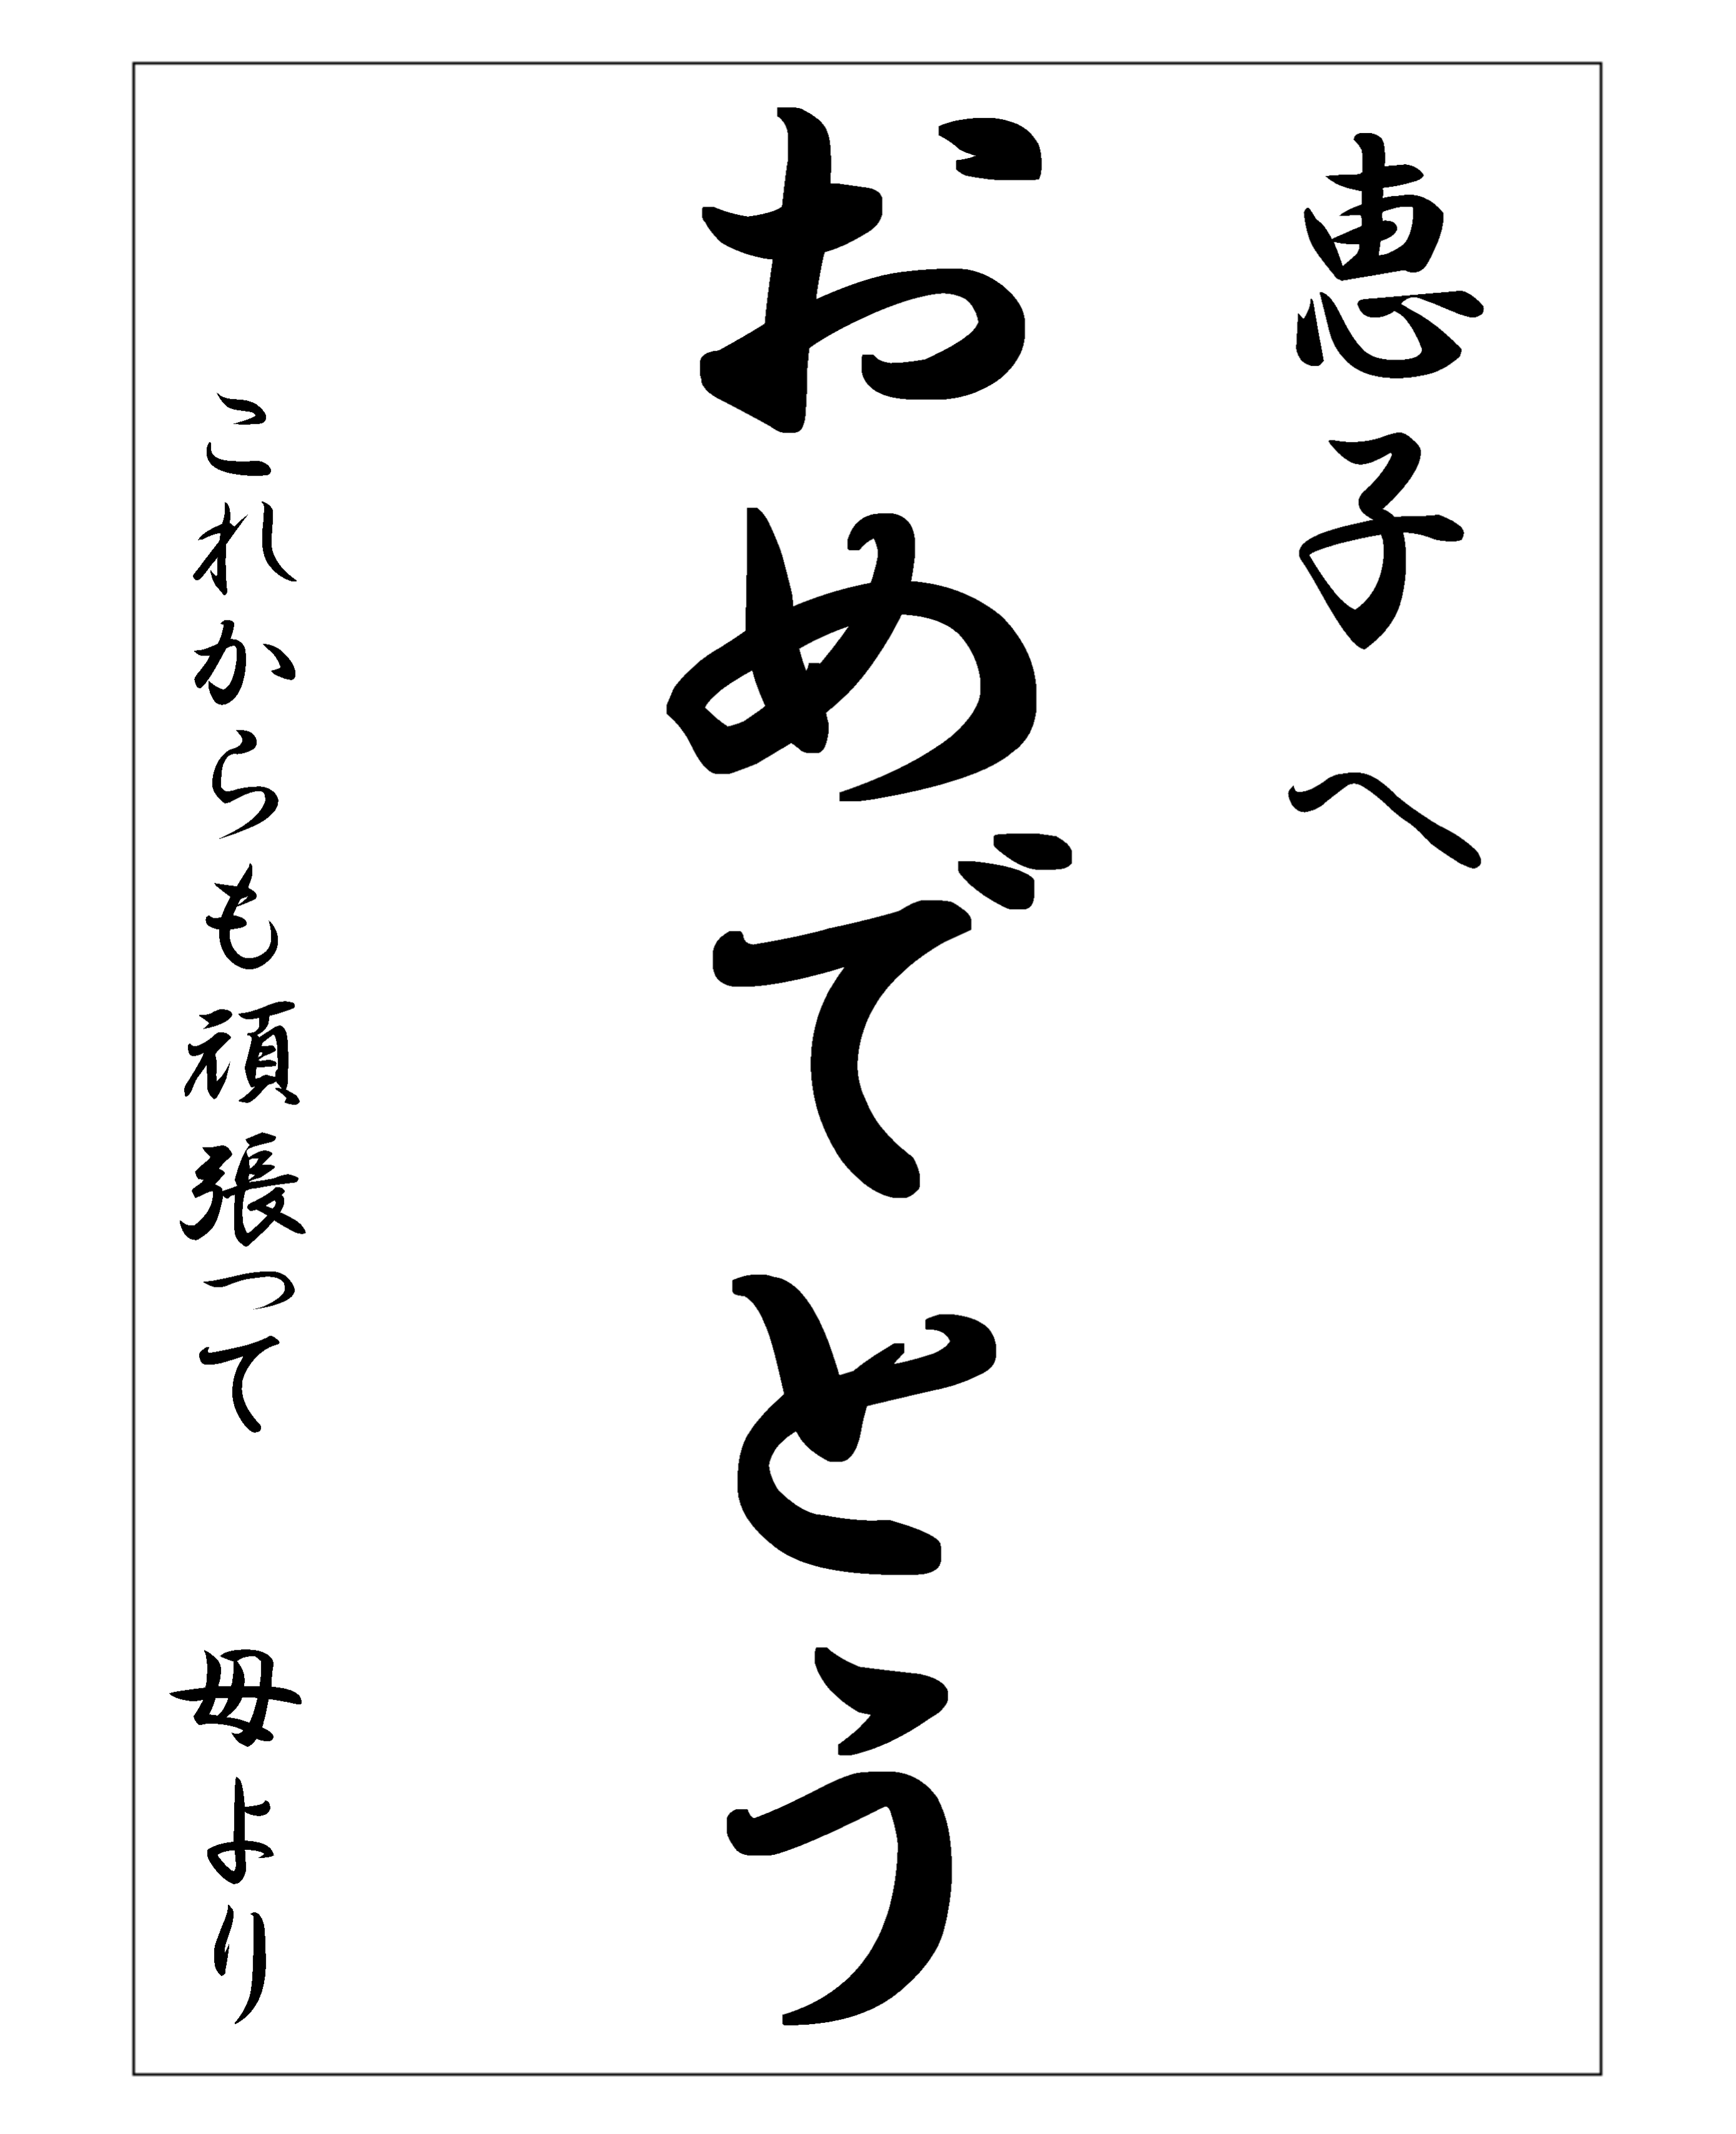 恵子へ
おめでとう
これからも頑張って　母より